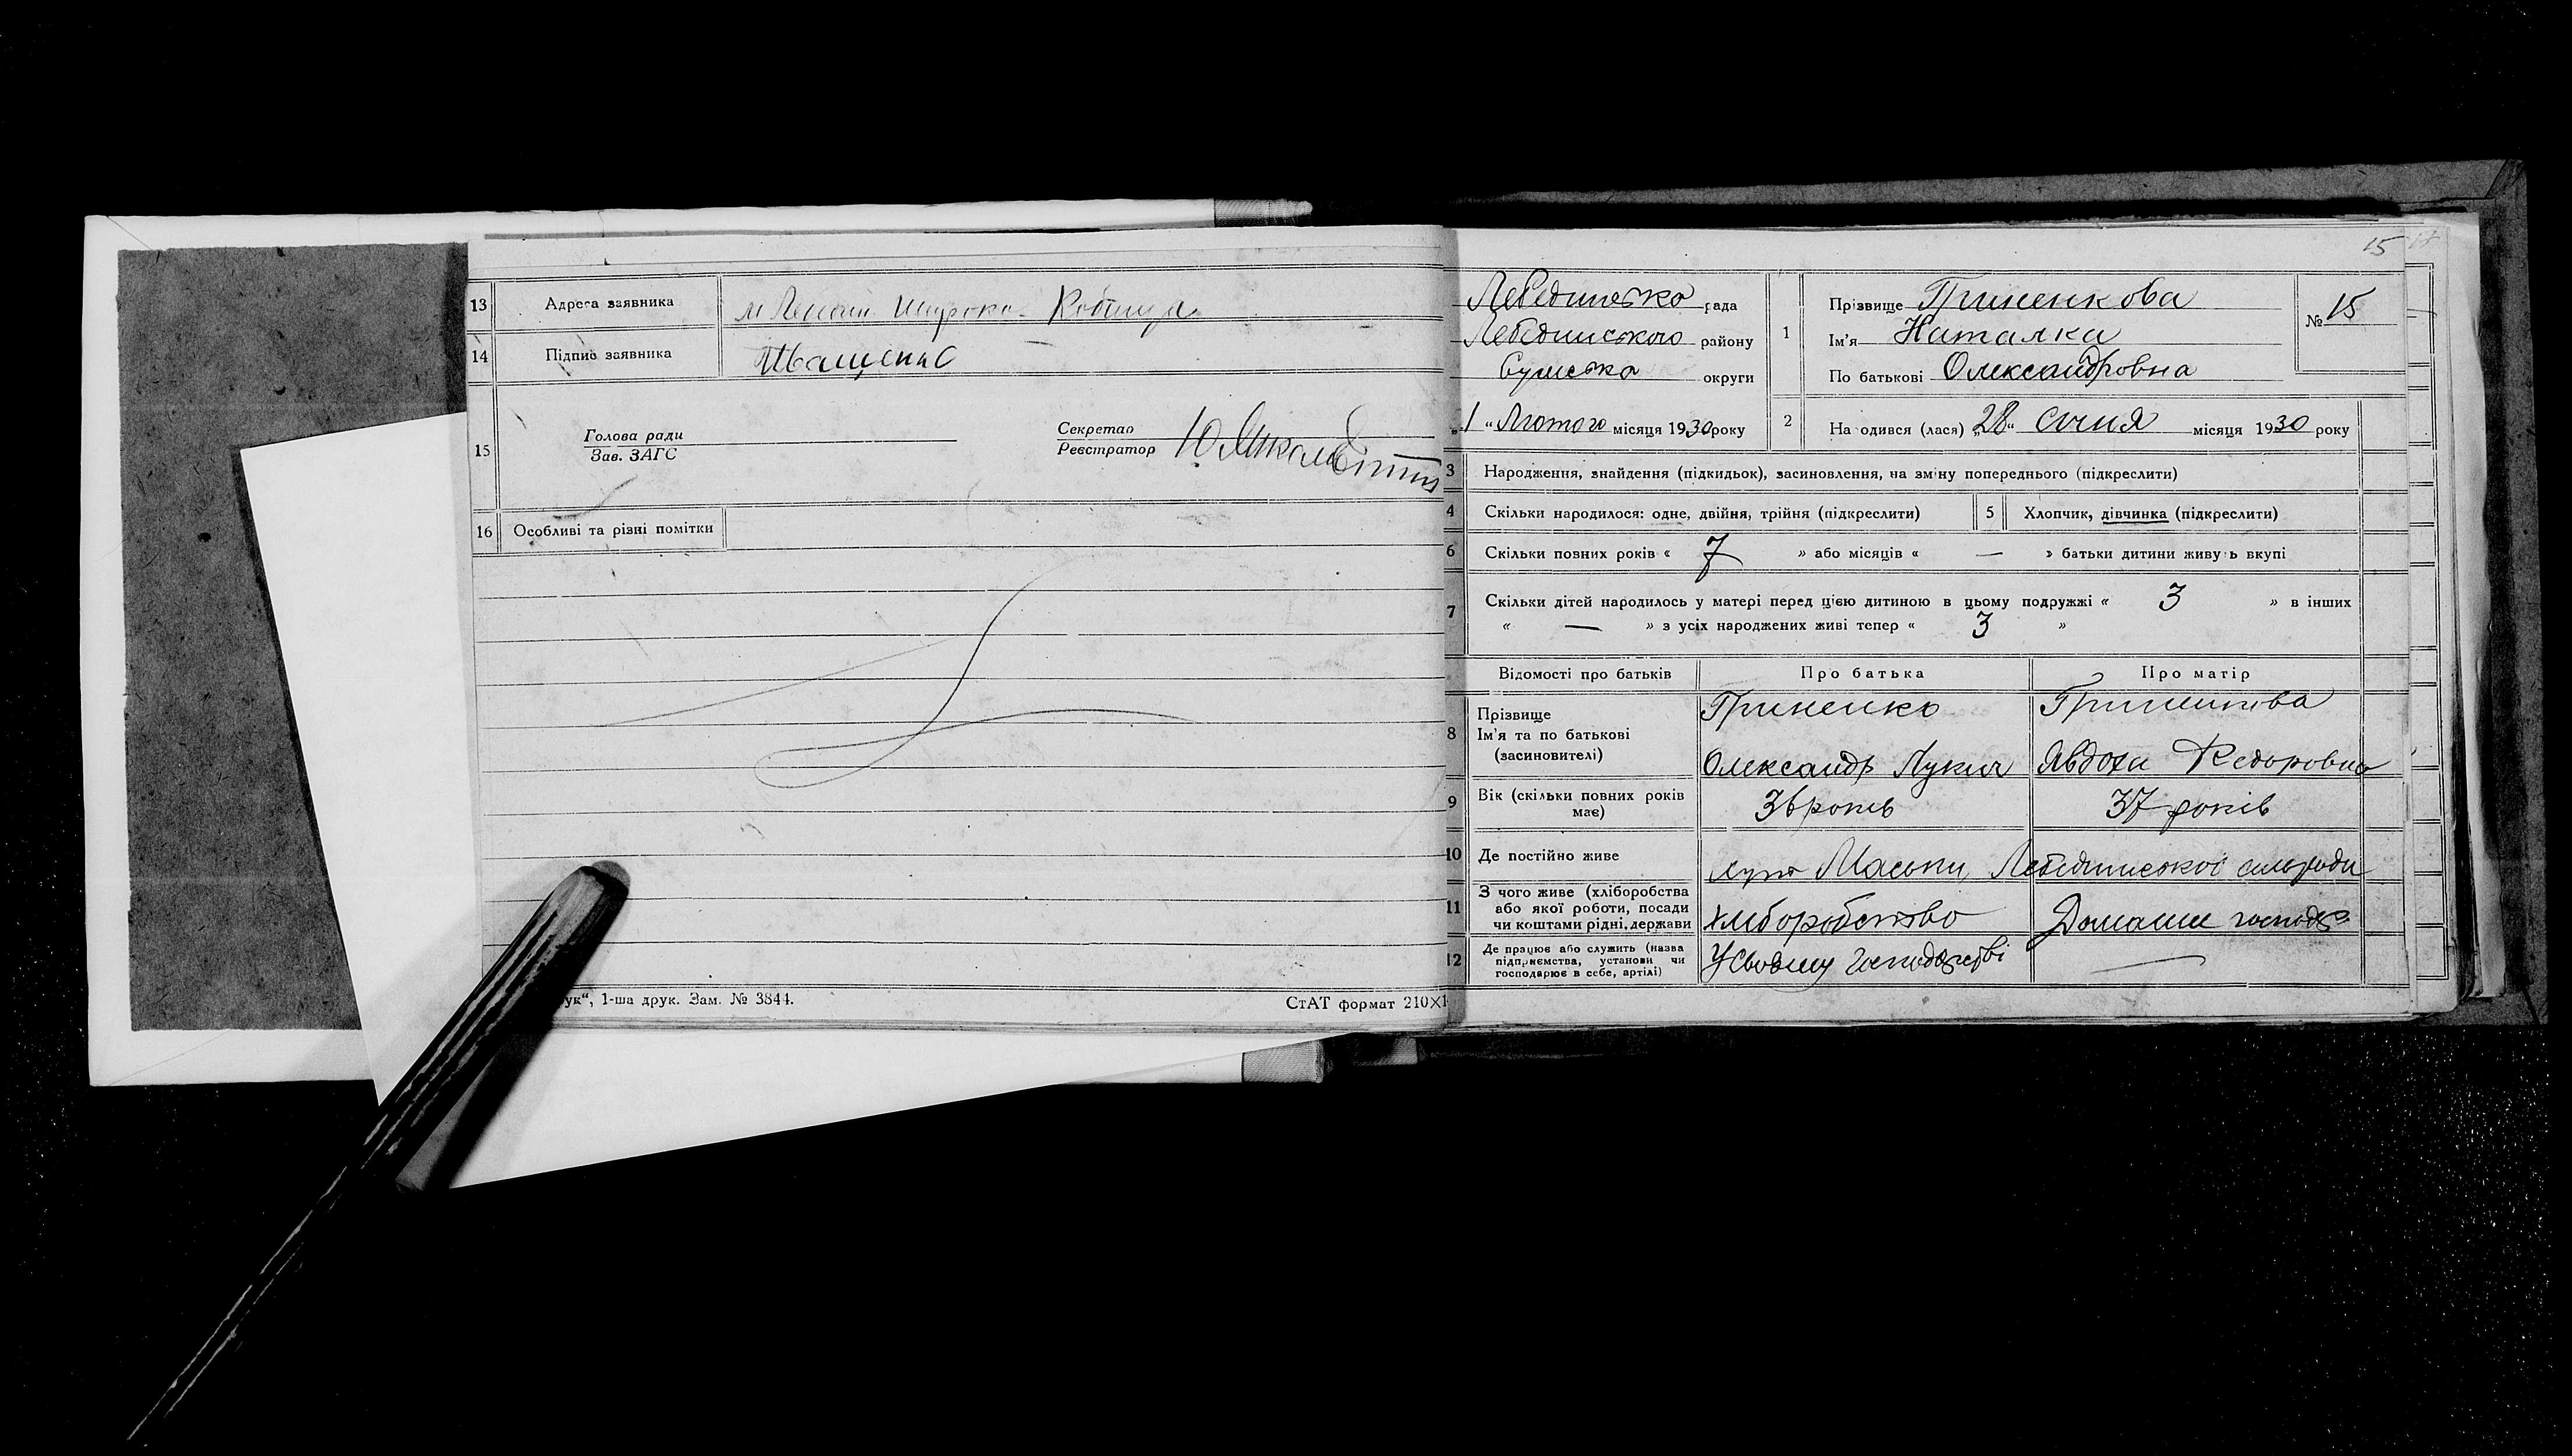 13 Адреса заявника
14 Підпис заявника Иващенко
15 Голова ради
Зав. ЗАГС
Секретар
Реєстратор
16 Особливі та різні помітки
ук“, 1-ша друк. Зам. № 3844.
СтАТ формат 210×1
15
Лебединська рада
Лебединського району
Сумська округи
„1“ Лютого місяця 1930 року
1 Прізвище Гриненкова
Ім'я Наталка
По батькові Олександровна
№ 15
2 На одився (лася) „28“ січня місяця 1930 року
3 Народження, знайдення (підкидьок), засиновлення, на зміну попереднього (підкреслити)
4 Скільки народилося: одне, двійня, трійня (підкреслити)
5 Хлопчик, дівчинка (підкреслити)
6 Скільки повних років « 7 » або місяців « — » батьки дитини живуть вкупі
7 Скільки дітей народилось у матері перед цією дитиною в цьому подружжі « 3 » в інших
« — » з усіх народжених живі тепер « 3 »
Відомості про батьків Про батька Про матір
8 Прізвище
Ім'я та по батькові
(засиновителі)
Гриненко
Олександр Лукич
Гриненкова
Явдоха Федоровна
9 Вік (скільки повних років
має)
36 років 37 років
10 Де постійно живе хут Маськи Лебединської сільради
11 З чого живе (хліборобства
або якої роботи, посади
чи коштами рідні, держави
хліборобство Домашнє господ
12 Де працює або служить (назва
підприємства, установи чи
господарює в себе, артілі)
У своєму господарстві —